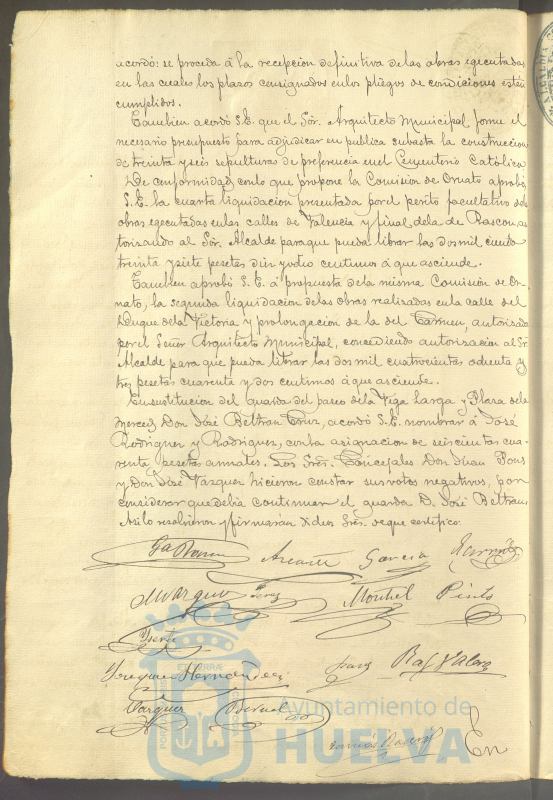 acordó: se proceda á la recepcion definitiva de las obras egecutadas
en las cuales los plazos consignados en los pliegos de condiciones esten
cumplidos.
Tambien acordó S.E. que el Sor. Arquitecto Municipal forme el
necesario presupuesto para adjudicar en publica subasta la construccion
de treinta y seis sepulturas de preferencia en el Cementerio Católico
De conformidad con lo que propone la Comision de Ornato aprobó
S.E. la cuarta liquidacion presentada por el perito facultativo de las
obras egecutadas en las calles de Valencia y final de la de Rascon, au
torizando al Sor. Alcalde para que pueda librar las dos mil, ciento
treinta y siete pesetas diez y ocho centimos á que asciende.
Tambien aprobó S.E. á propuesta de la misma Comision de Or-
nato, la segunda liquidacion de las obras realizadas en la calle del
Duque de la Victoria y prolongacion de la del Carmen, autorizada
por el Señor Arquitecto Municipal, concediendo autorizacion al Sr.
Alcalde para que pueda librar las dos mil cuatrocientas ochenta y
tres pesetas cuarenta y dos centimos á que asciende.
En sustitucion del guarda del paseo de la Vega Larga y Plaza de la
Merced Don José Beltran Cruz, acordó S.E. nombrar á José
Rodriguez y Rodriguez, con la asignacion de seiscientas cua
renta pesetas annales. Los Sres. Concejales Don Juan Pons
y Don José Vazquez hicieron constar sus votos negativos, por
considerar que debia continuar el guarda D. José Beltran.
Asi lo resolvieron y firmarán dichos Sres. de que certifico.
Garcia
Vazquez Montiel Pinto
Hernandez
Vazquez Bernal
En
Ayuntamiento de
HUELVA